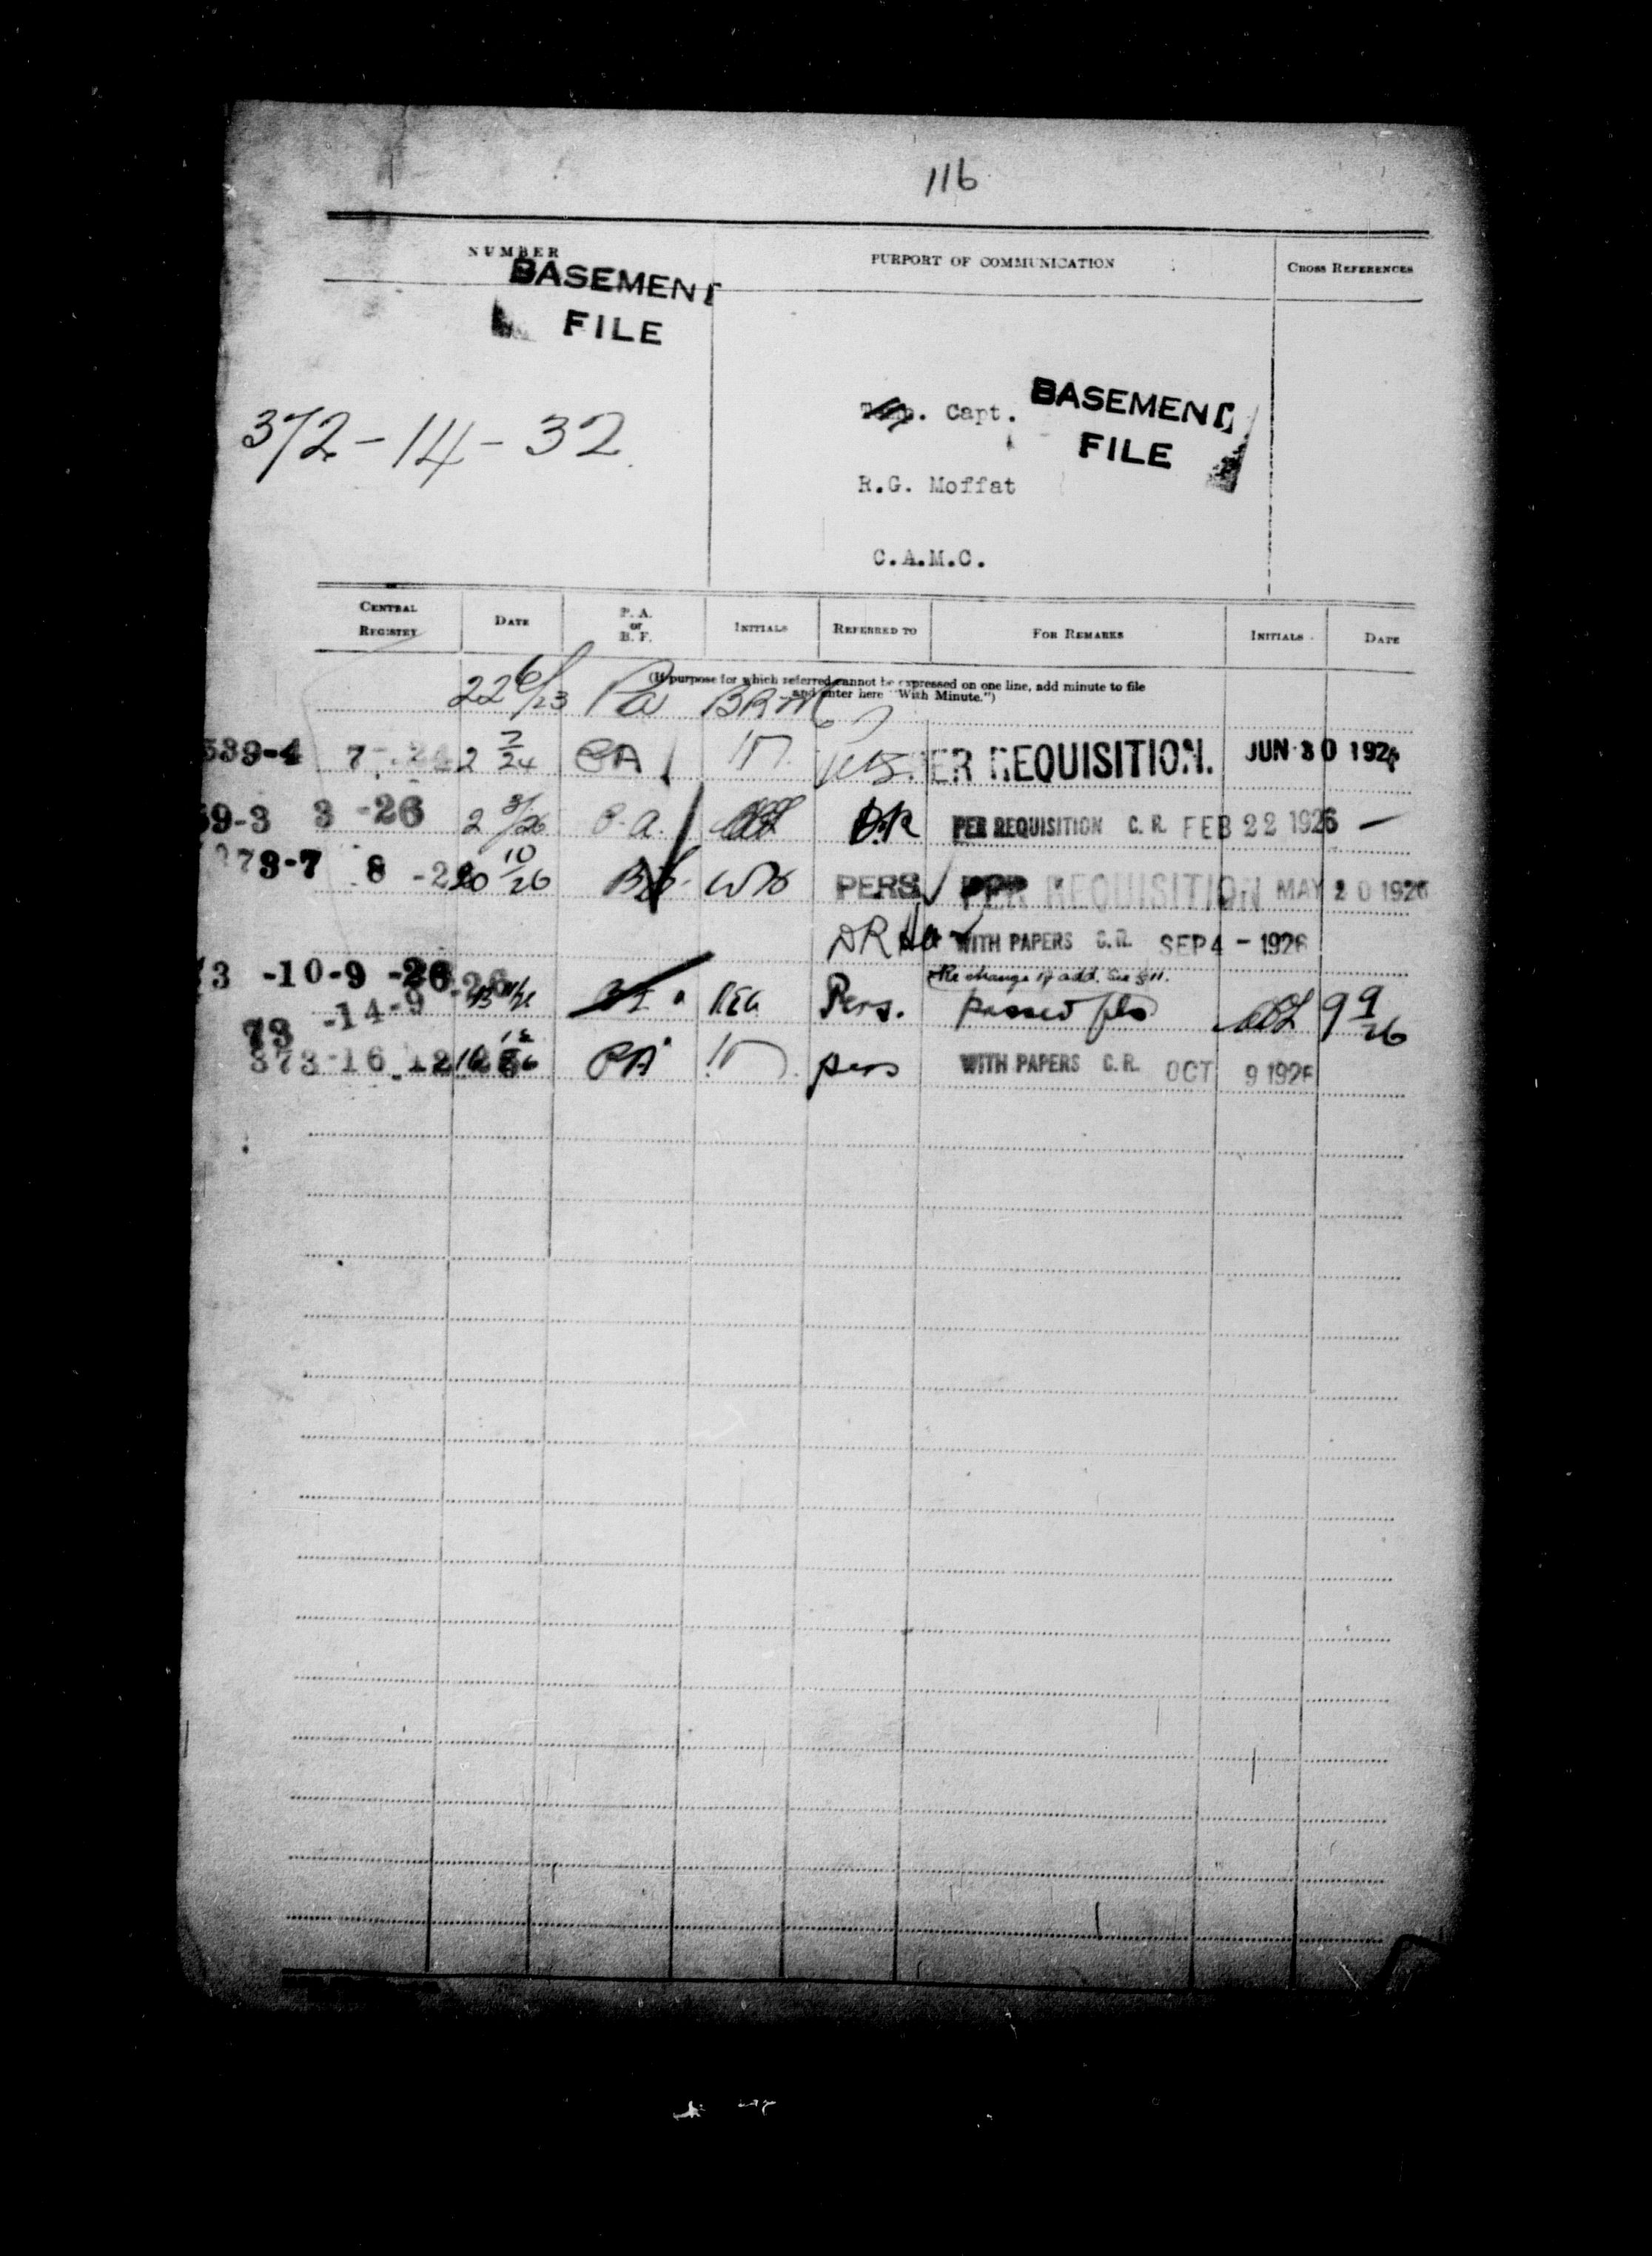 116
NUMBER PURPORT OF COMMUNICATION CROSS REFERENCES
BASEMENT
FILE
BASEMENT
FILE
372-14-32
Temp. Capt.
R.G. Moffat
C.A.M.C.
CENTRAL REGISTRY DATE P.A. or B.F. INITIALS REFERRED TO FOR REMARKS INITIALS DATE
(If purpose for which referred cannot be expressed on one line, add minute to file
and enter here "With Minute.")
22 6/23 PA
339-4 7 2 7/24 PA ER REQUISITION. JUN 30 1924
59-3 3 -26 2 3/26 P.A. D.R PER REQUISITION C. R. FEB 22 1926 —
373-7 8 -26 20 10/26 PERS PER REQUISITION MAY 20 1926
DR WITH PAPERS C.R. SEP 4 - 1926
Re change of add. See
73 -10-9 -26 Pers. passed 9 9/26
73 -14-9 -26
373-16 12 26 PA pers WITH PAPERS C.R. OCT 9 1926